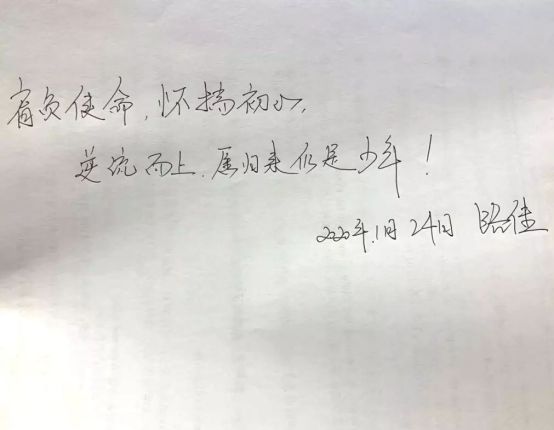 肩负使命,怀揣初心,
逆流而上,愿归来仍是少年!
2020年1月24日 路佳